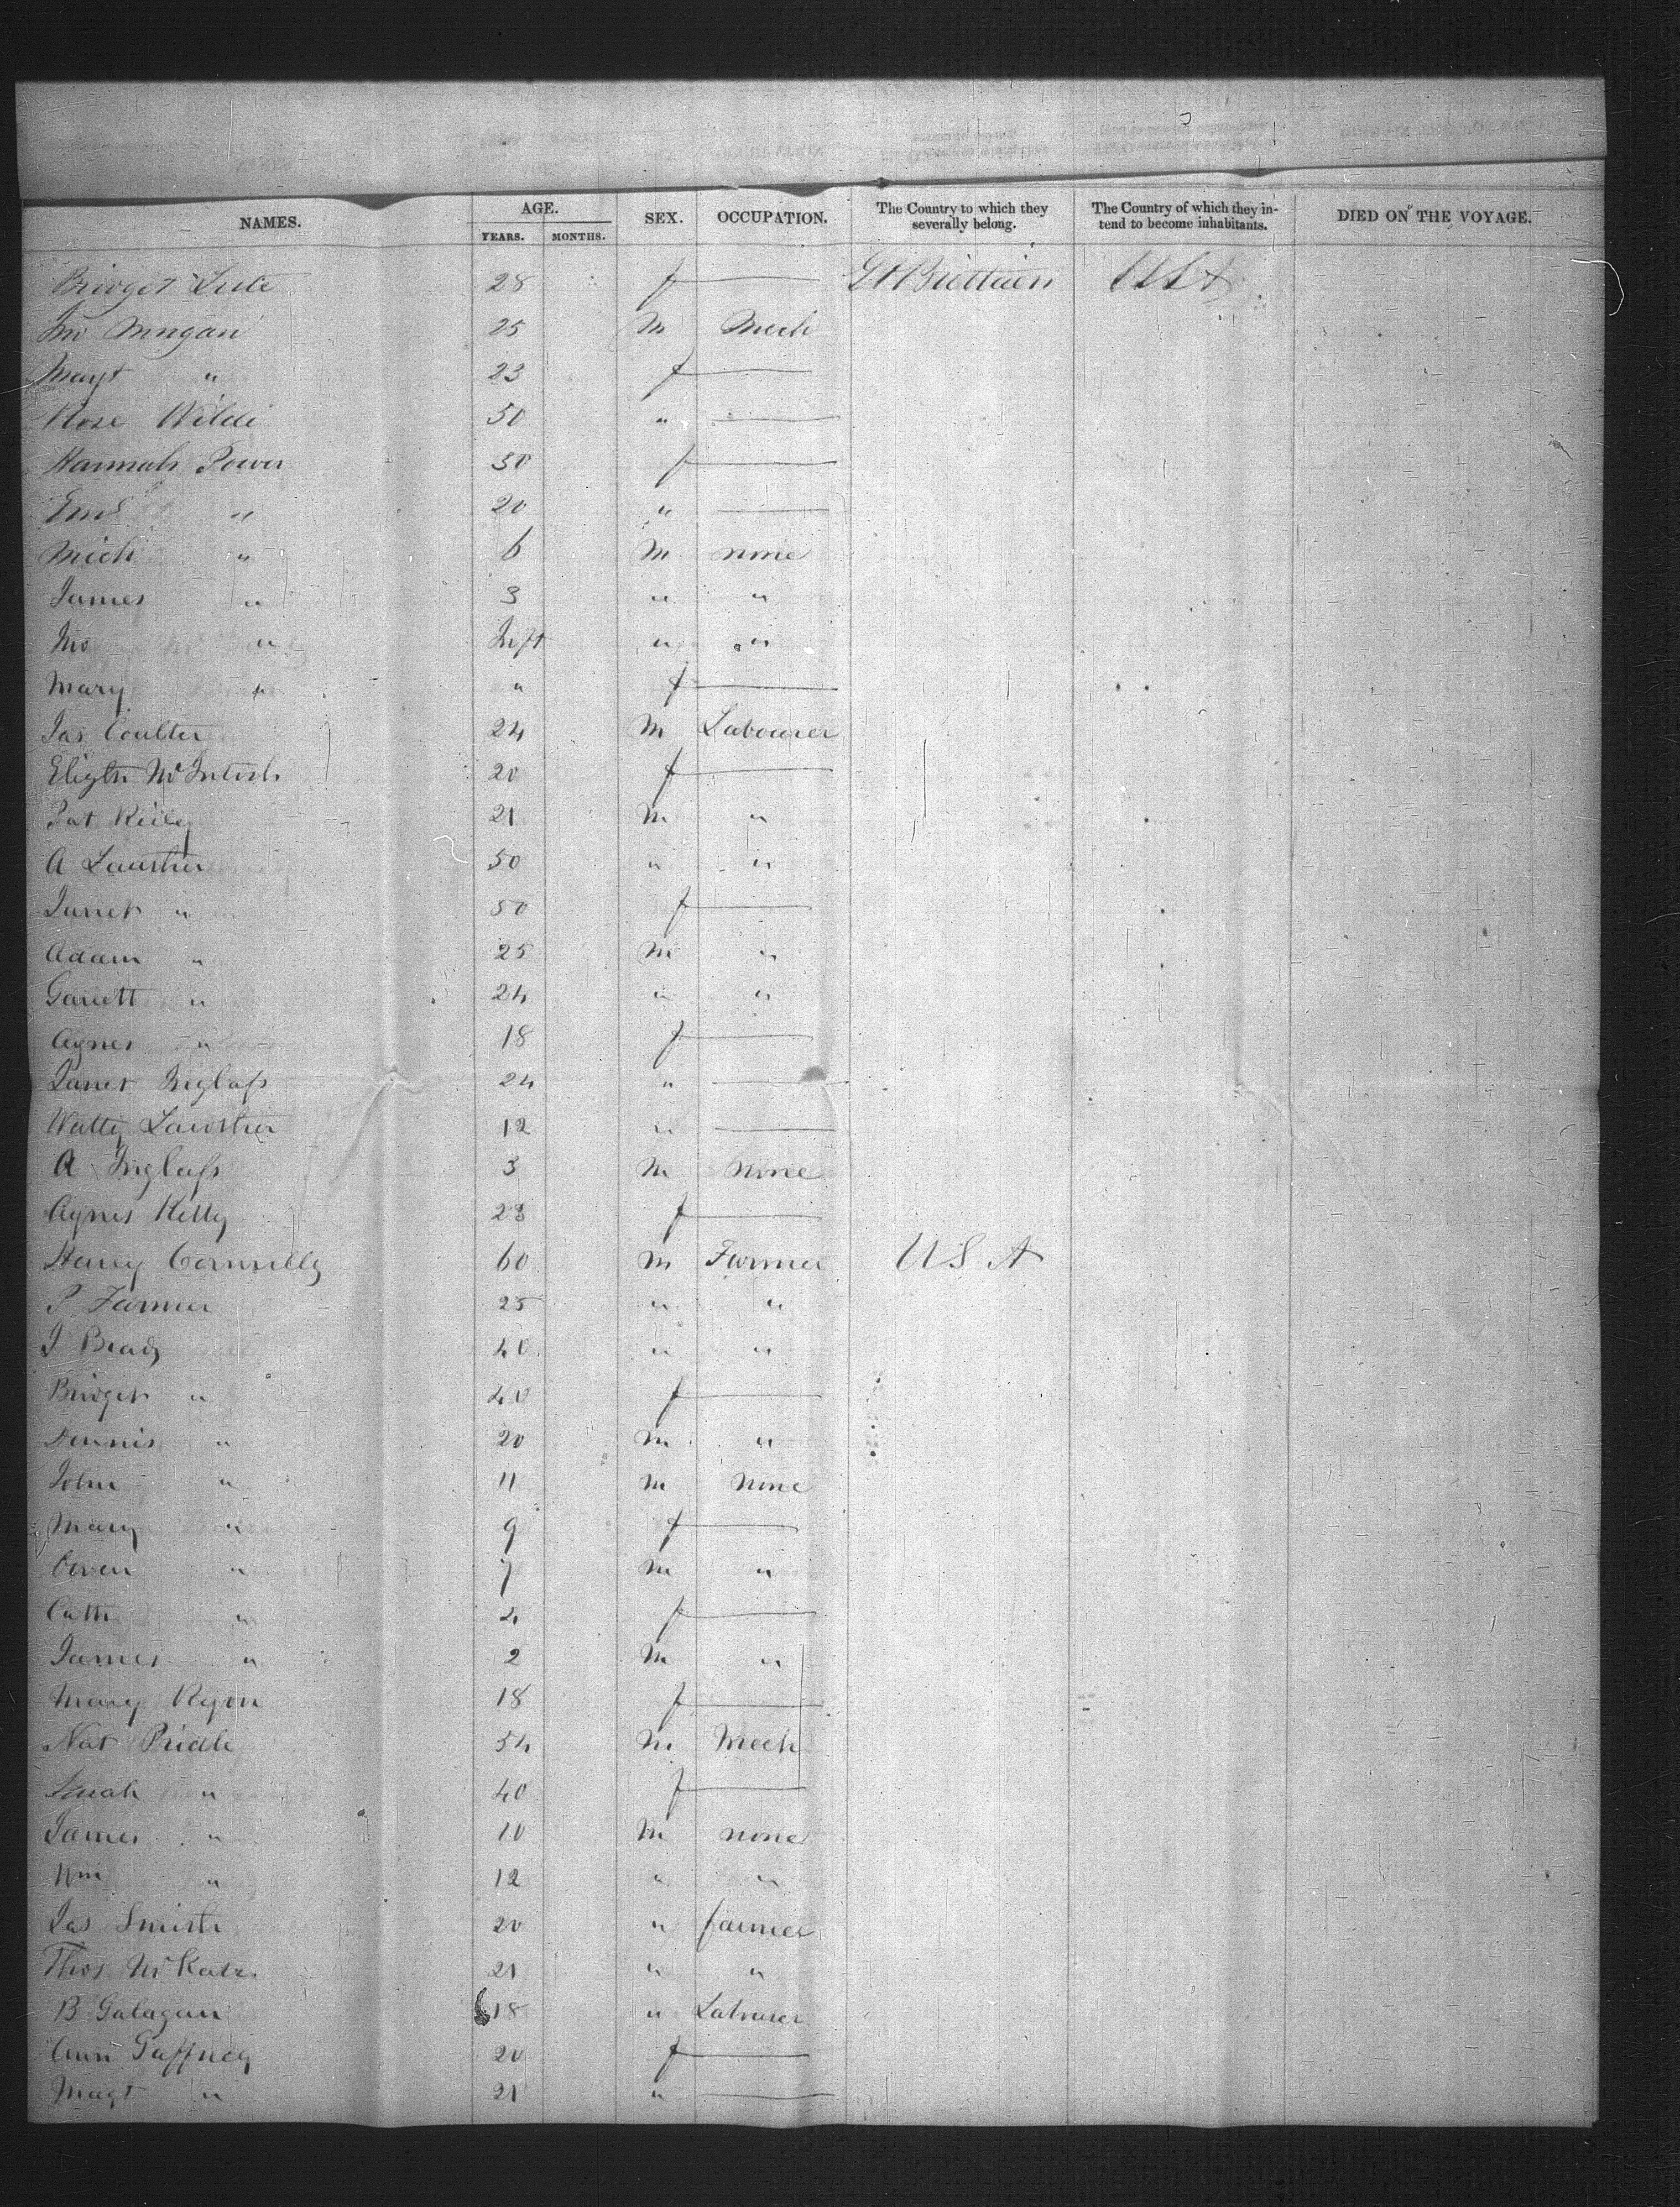 NAMES. AGE. SEX. OCCUPATION. The Country to which they severally belong. The Country of which they intend to become inhabitants. DIED ON THE VOYAGE.
YEARS. MONTHS.
Bridget 28 f — Gt Brittain USA
Jno 25 M Mech
Magt " 23 f —
Rose Wilde 50 " —
Hannah Power 30 f —
" 20 " —
Mich " 6 M none
James " 3 " "
Jno " Inft " "
Mary " " f —
Jas Coulter 24 M Labourer
Elizth McIntosh 20 f —
Pat Reily 21 M "
A 50 " "
Janet " 50 f —
Adam " 25 M "
Garrett " 24 " "
Agnes " 18 f —
Janet 24 " —
12 " —
A 3 M none
Agnes Kelly 23 f —
Harry Connelly 60 M Farmer USA
P. Farmer 25 " "
J Brady 40 " "
Bridget " 40 f —
Dennis " 20 M "
John " 11 M none
Mary " 9 f —
Owen " 7 M "
Cath " 4 f —
James " 2 M "
Mary Ryon 18 f —
Nat 54 M Mech
Sarah " 40 f —
James " 10 M none
Wm " 12 " "
Jas Smith 20 " farmer
Thos 21 " "
B Galagan 18 " Labourer
Ann Gaffney 20 f —
Magt " 21 " —